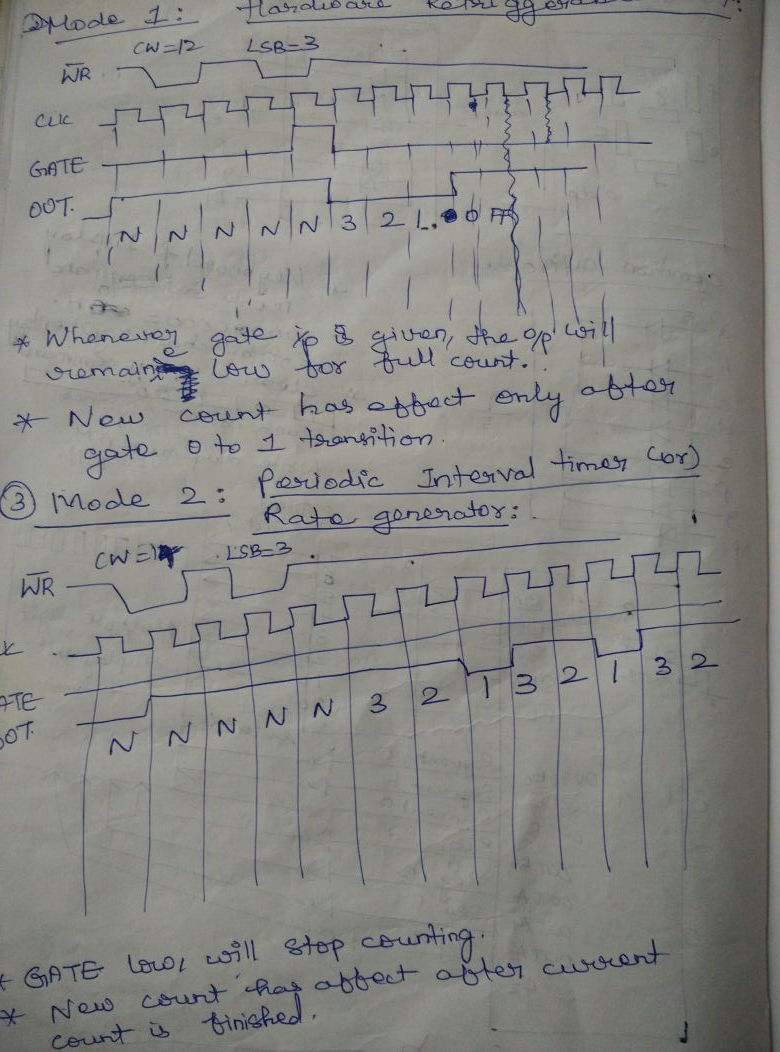 ② Mode 1: Hardware
CW=12 LSB=3
WR
CLK
GATE
OUT.
N N N N N 3 2 1. 0 FF
* Whenever gate i/p is given, the o/p will
remain low for full count.
* New count has effect only after
gate 0 to 1 transition.
③ Mode 2: Periodic Interval timer (or)
Rate generator:
CW=14 LSB=3
WR
K
ATE
OOT.
N N N N N 3 2 1 3 2 1 3 2
* GATE low, will stop counting.
* New count has affect after current
count is finished.